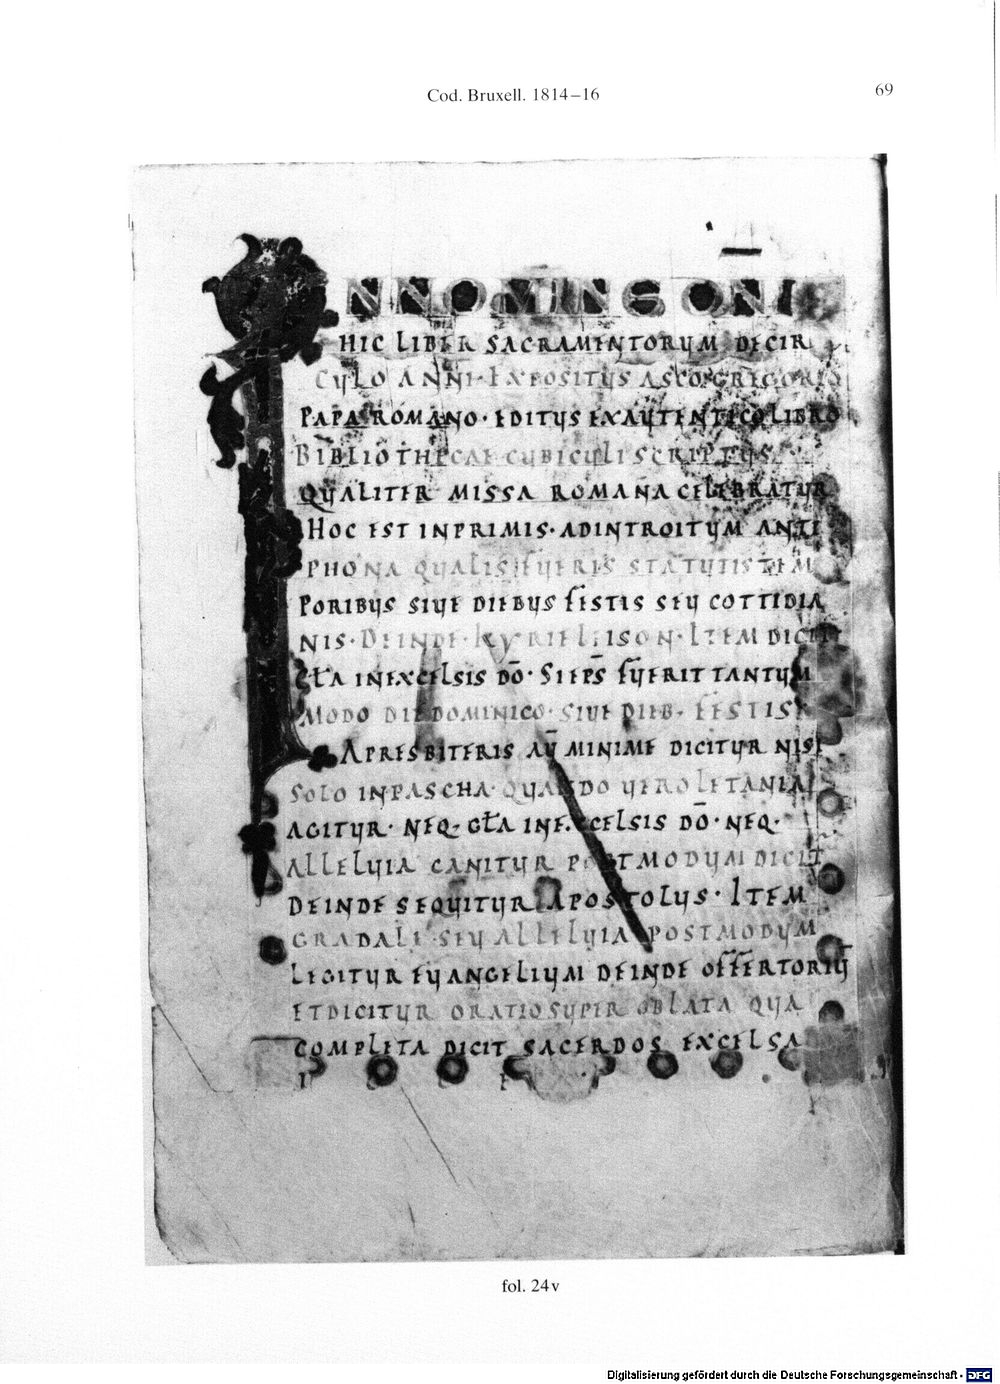 Cod. Bruxell. 1814–16
69
IN NOMINE DÑI
HIC LIBER SACRAMENTORUM DECIR
CULO ANNI· EXPOSITUS ASCO GREGORIO
PAPA ROMANO· EDITUS EXAUTENTICO LIBRO
BIBLIOTHECAE CUBICULI SCRIPTUS·
QUALITER MISSA ROMANA CELEBRATUR
HOC EST INPRIMIS· ADINTROITUM ANTI
PHONA QUALIS FUERIS STATUTIS TEM
PORIBUS SIUE DIEBUS FESTIS SEU COTTIDIA
NIS· DEINDE· KYRIELEISON· ITEM DICIT
GLA INEXCELSIS DŌ· SI EPS FUERIT TANTUM
MODO DIE DOMINICO· SIUE DIEB· FESTIS·
APRESBITERIS AŪ MINIME DICITUR NISI
SOLO INPASCHA· QUANDO UERO LETANIA
AGITUR· NEQ· GLA INEXCELSIS DŌ· NEQ·
ALLELUIA CANITUR POSTMODUM DICIT
DEINDE SEQUITUR APOSTOLUS· ITEM
GRADALE· SEU ALLELUIA POSTMODUM
LEGITUR EUANGELIUM DEINDE OFFERTORIŪ
ETDICITUR ORATIO SUPER OBLATA QUA
COMPLETA DICIT SACERDOS EXCELSA
fol. 24v
Digitalisierung gefördert durch die Deutsche Forschungsgemeinschaft - DFG